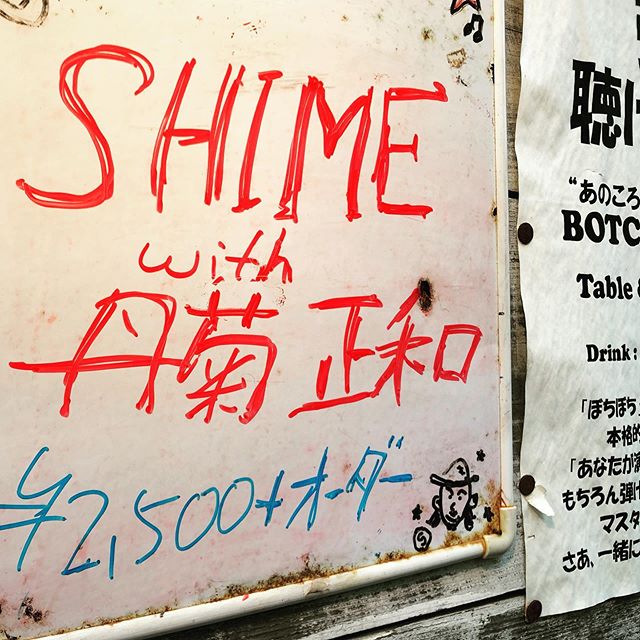 SHIME
with
丹菊 正和
¥2,500+オーダー
聴け
“あのころ
BOTC
Table &
Drink :
「ぼちぼち
本格的
「あなたが
もちろん弾け
マスタ
さあ、一緒に